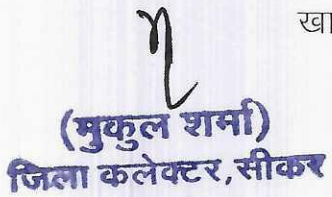 खा
(मुकुल शर्मा)
जिला कलेक्टर, सीकर